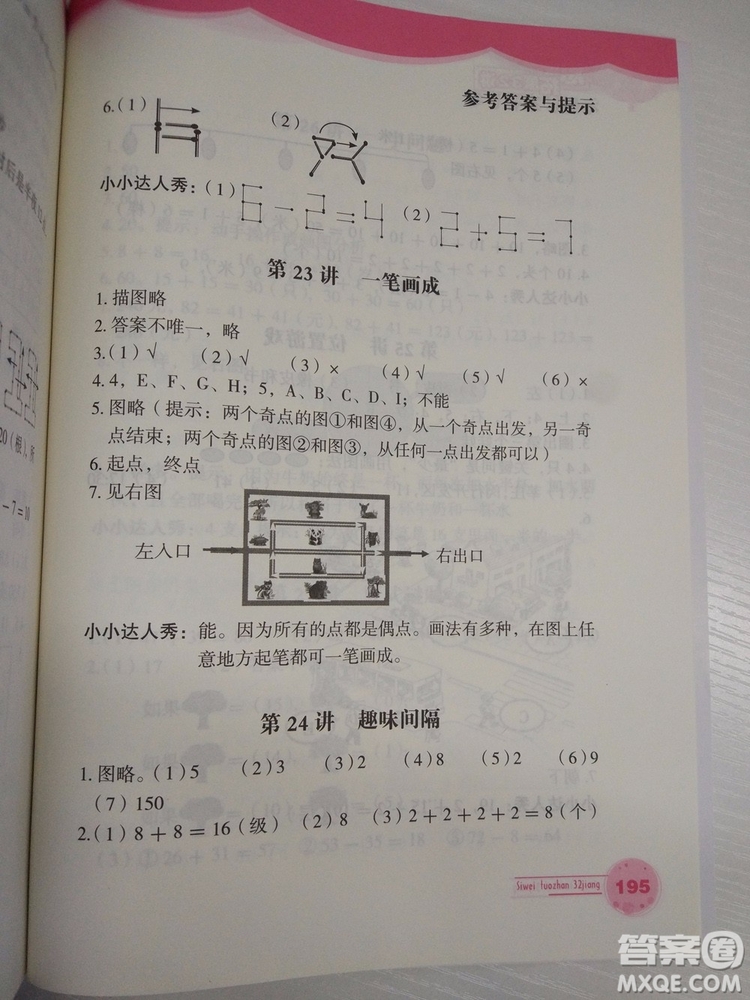 参考答案与提示
6.(1)
(2)
小小达人秀：(1) 6－2＝4 (2) 2＋5＝7
第 23 讲 一笔画成
1. 描图略
2. 答案不唯一，略
3.(1)√ (2)√ (3)× (4)√ (5)√ (6)×
4. 4，E、F、G、H；5，A、B、C、D、I；不能
5. 图略（提示：两个奇点的图①和图④，从一个奇点出发，另一奇
点结束；两个奇点的图②和图③，从任何一点出发都可以）
6. 起点，终点
7. 见右图
左入口
右出口
小小达人秀：能。因为所有的点都是偶点。画法有多种，在图上任
意地方起笔都可一笔画成。
第 24 讲 趣味间隔
1. 图略。(1)5 (2)3 (3)2 (4)8 (5)2 (6)9
(7)150
2.(1)8＋8＝16（级） (2)8 (3)2＋2＋2＋2＝8（个）
Siwei tuozhan 32jiang
195
20（根）
－7＝10
答案圈
MXQE.COM